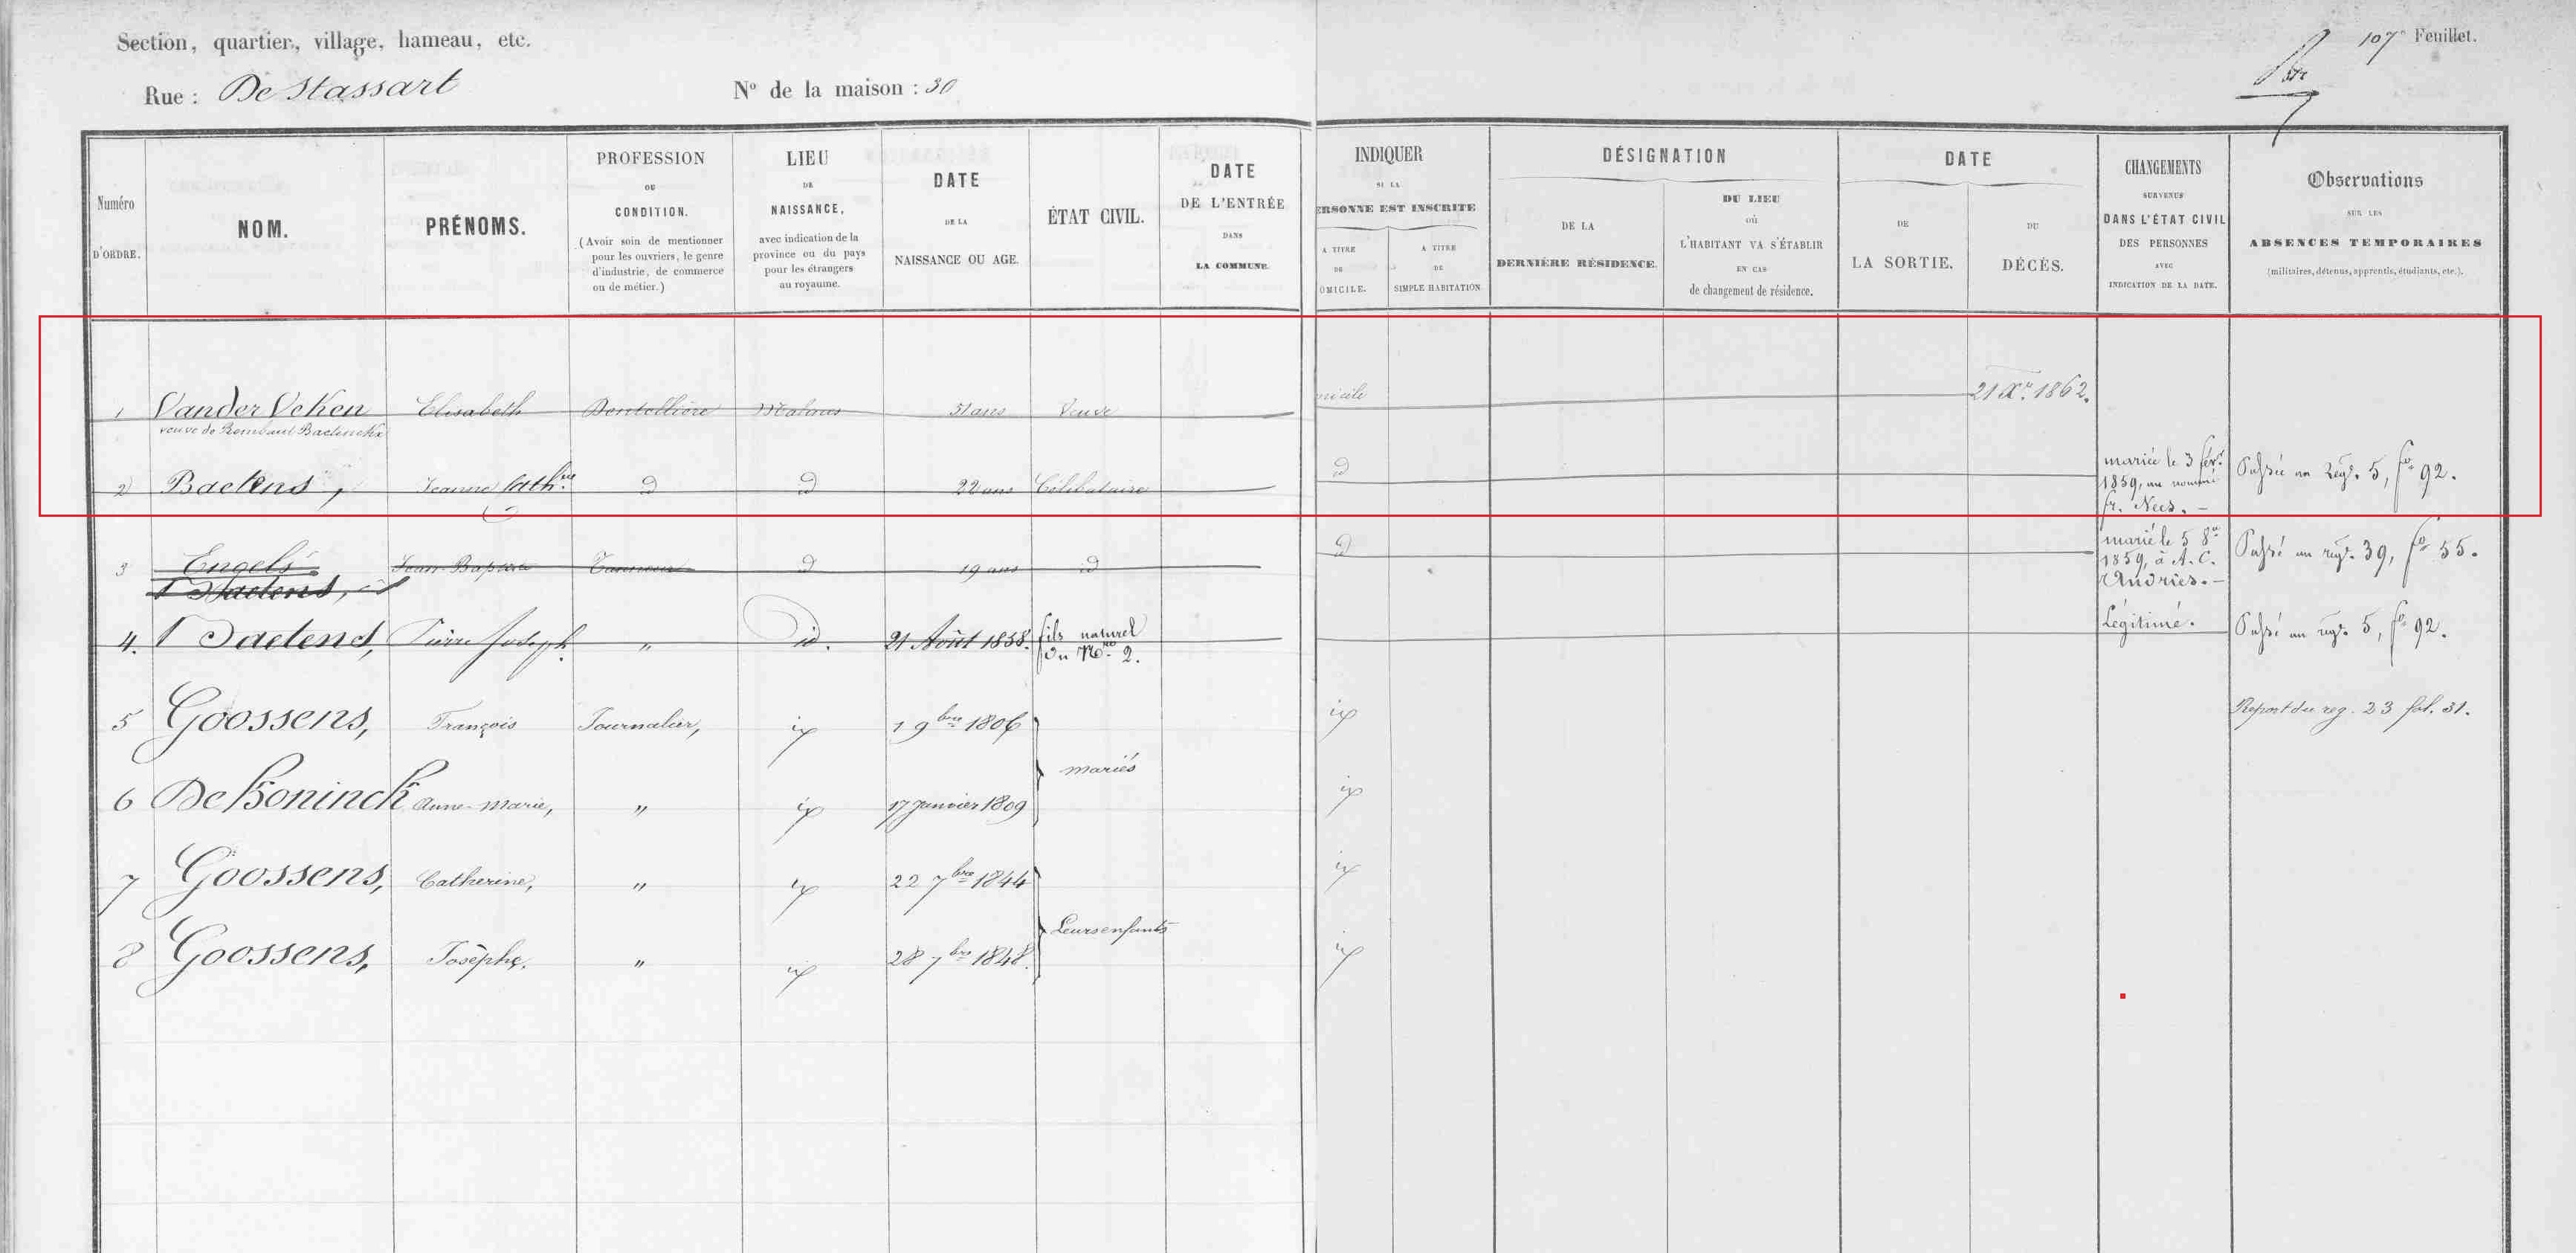 Section, quartier, village, hameau, etc.
107e Feuillet.
Rue : De Stassart
No de la maison : 30
Numéro
D'ORDRE.
NOM.
PRÉNOMS.
PROFESSION
OU
CONDITION.
(Avoir soin de mentionner
pour les ouvriers, le genre
d'industrie, de commerce
ou de métier.)
LIEU
DE
NAISSANCE,
avec indication de la
province ou du pays
pour les étrangers
au royaume.
DATE
DE LA
NAISSANCE OU AGE.
ÉTAT CIVIL.
DATE
DE L'ENTRÉE
DANS
LA COMMUNE.
INDIQUER
SI LA
ERSONNE EST INSCRITE
A TITRE
DE
OMICILE.
A TITRE
DE
SIMPLE HABITATION
DÉSIGNATION
DE LA
DERNIÈRE RÉSIDENCE.
DU LIEU
où
L'HABITANT VA S'ÉTABLIR
EN CAS
de changement de résidence.
DATE
DE
LA SORTIE.
DU
DÉCÈS.
CHANGEMENTS
SURVENUS
DANS L'ÉTAT CIVIL
DES PERSONNES
AVEC
INDICATION DE LA DATE.
Observations
SUR LES
ABSENCES TEMPORAIRES
(militaires, détenus, apprentis, étudiants, etc.).
1 Vander Veken Elisabeth Dentellière Malines 51 ans Veuve micile 21 Xre 1862.
veuve de Rombaut Baetenckx
2 Baetens, Jeanne Cathne d d 22 ans Célibataire d
mariée le 3 févr
1859, au nommé
fr. Nees. -
Passée au Régt. 5, fo 92.
3 Engels Jean-Baptiste Tanneur d 19 ans id d
Baetens,
marié le 5 8re
1859, à A. C.
Andries. -
Passé au regt. 39, fo 55.
4. Baetens, Pierre Joseph. " id. 21 Août 1858.
fils naturel
du No. 2.
Légitimé.
Passé au regt. 5, fo 92.
5 Goossens, François Journalier, id 1 9bre 1806 id
Report du reg. 23 fol. 31.
mariés
6 De Koninck Anne-marie, " id 17 janvier 1809 id
7 Goossens, Catherine, " id 22 7bre 1844 id
Leurs enfants
8 Goossens, Josèphe, " id 28 7bre 1848. id